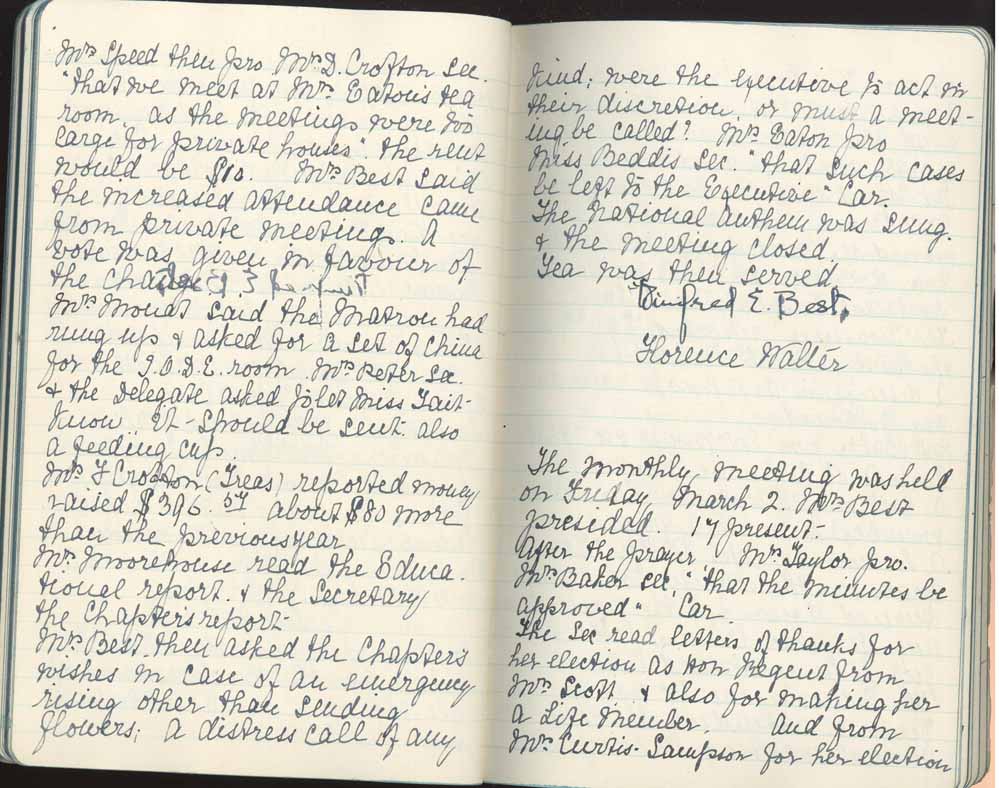 Mrs Speed then pro Mrs D. Crofton sec.
"that we meet at Mrs Eaton's tea
room, as the meetings were too
large for private houses". the rent
would be $10. Mrs Best said
the increased attendance came
from private meetings. A
vote was given in favour of
the change
Mrs Mouat said the Matron had
rung up & asked for a set of china
for the I.O.D.E. room. Mrs Peter sec.
& the delegate asked to let Miss Tait
know. It should be sent. also
a feeding cup.
Mrs F Crofton (Treas) reported money
raised $396.57 about $80 more
than the previous year
Mrs Moorehouse read the Educa.
tional report. & the Secretary
the Chapter's report
Mrs Best. then asked the Chapters
wishes in case of an emergency
rising other than sending
flowers; A distress call of any
kind; were the executive to act in
their discretion, or must a meet-
ing be called? Mrs Eaton pro
Miss Beddis sec. "that such cases
be left to the Executive" Car.
The National Anthem was sung.
& the meeting closed.
Tea was then served
Winifred E. Best.
Florence Walter
The monthly meeting was held
on Friday, March 2. Mrs Best
presided. 17 present.
After the prayer Mrs Taylor pro.
Mrs Baker sec. "that the minutes be
approved" Car.
The Sec read letters of thanks for
her election as Hon Regent from
Mrs Scott & also for making her
a Life Member. And from
Mrs Curtis-Sampson for her election